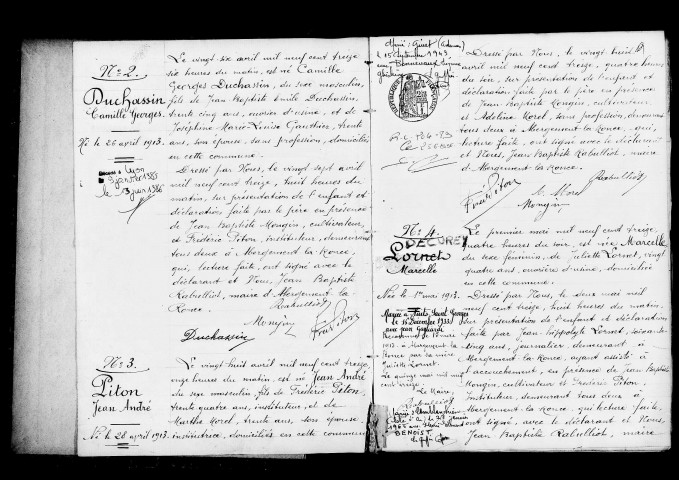 N° 2.
Duchassin
Camille Georges.
Né le 26 avril 1913.
Décédé à Lyon
le 3 juin 1986
Le vingt six avril mil neuf cent treize
six heures du matin, est né Camille
Georges Duchassin, du sexe masculin,
fils de Jean Baptiste Emile Duchassin,
trente cinq ans, ouvrier d'usine, et de
Joséphine Marie-Louise Gauthier, trente
ans, son épouse, sans profession, domiciliés
en cette commune.
Dressé par Nous, le vingt sept avril
mil neuf cent treize, huit heures du
matin, sur présentation de l'enfant et
déclaration faite par le père en présence
de Jean Baptiste Mongin, cultivateur,
et Frédéric Piton, instituteur, demeurant
tous deux à Abergement la Ronce,
qui, lecture faite, ont signé avec le
déclarant et Nous, Jean Baptiste
Rabulliot, maire d'Abergement la
Ronce.
Rabulliot
Mongin
Fréd Piton
Duchassin
N° 3.
Piton
Jean André
Né le 28 avril 1913.
Le vingt huit avril mil neuf cent treize,
onze heures du matin, est né Jean André
du sexe masculin, fils de Frédéric Piton,
trente quatre ans, instituteur, et de
Marthe Morel, trente ans, son épouse,
institutrice, domiciliés en cette commune
le 15 septembre 1943
Dressé par Nous, le vingt huit
avril mil neuf cent treize, quatre heures
du soir, sur présentation de l'enfant et
déclaration faite par le père en présence
de Jean-Baptiste Mongin, cultivateur,
et Adeline Morel, sans profession, demeurant
tous deux à Abergement la Ronce, qui,
lecture faite, ont signé avec le déclarant
et Nous, Jean Baptiste Rabulliot, maire
d'Abergement la Ronce.
Rabulliot
Fréd Piton
Morel
Mongin
N° 4.
DÉCÉDÉE
Lornet
Marcelle
Née le 1er mai 1913.
Mariée à
le 15 Décembre 1933
avec Jean
Reconnue le
1913 à Abergement la
Ronce par la mère
Juliette Lornet.
Le quinze mai mil neuf
cent treize.
Le Maire,
Rabulliot
BENOIST
Le premier mai mil neuf cent treize,
quatre heures du soir, est née Marcelle
du sexe féminin, de Juliette Lornet, vingt
quatre ans, ouvrière d'usine, domiciliée
en cette commune.
Dressé par Nous, le deux mai mil
neuf cent treize, huit heures du matin,
sur présentation de l'enfant et déclaration
faite par Jean Hippolyte Lornet, soixante
cinq ans, journalier demeurant à
Abergement la Ronce, ayant assisté à
l'accouchement, en présence de Jean Baptiste
Mongin, cultivateur et Frédéric Piton,
instituteur, demeurant tous deux à
Abergement la Ronce, qui lecture faite,
ont signé, avec le déclarant et Nous,
Jean Baptiste Rabulliot, maire